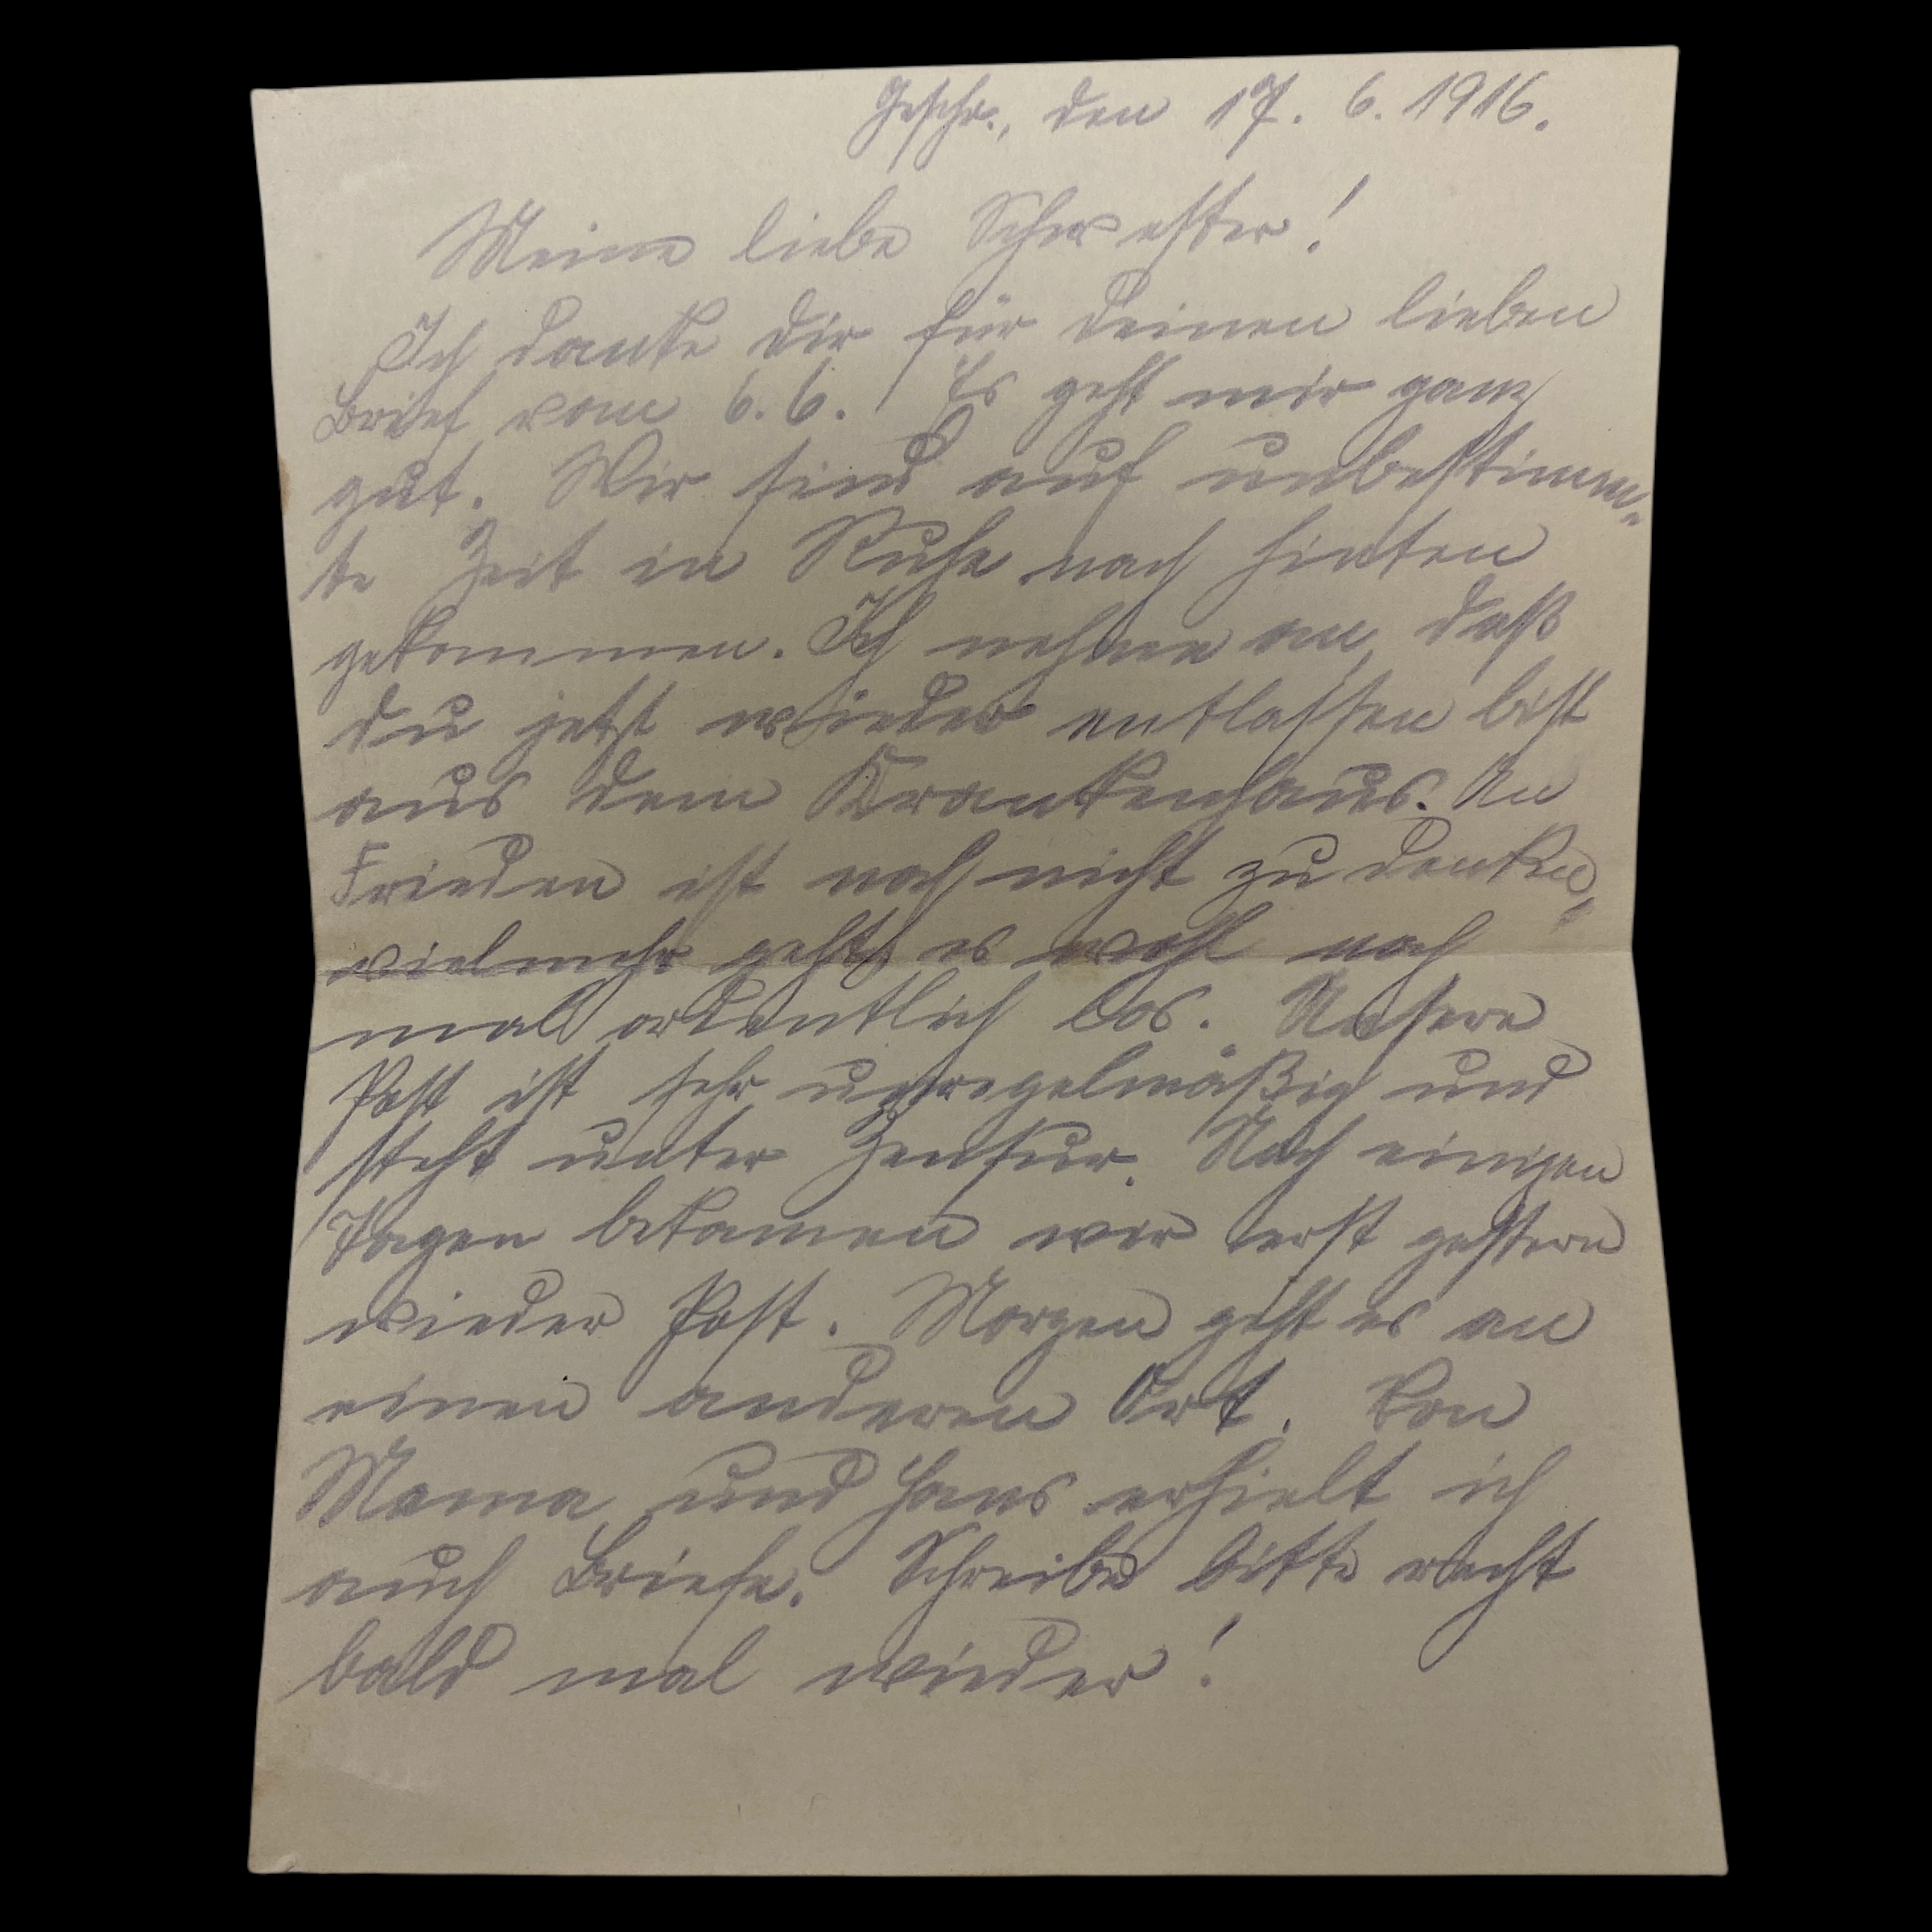 Geschr., den 17. 6. 1916.
Meine liebe Schwester!
Ich danke dir für deinen lieben
Brief vom 6. 6. Es geht mir ganz
gut. Wir sind auf unbestimm-
te Zeit in Ruhe nach hinten
gekommen. Ich nehme an, daß
du jetzt wieder entlassen bist
aus dem Krankenhaus. An
Frieden ist noch nicht zu denken,
vielmehr geht es wohl noch
mal ordentlich los. Unsere
Post ist sehr unregelmäßig und
steht unter Zensur. Nach einigen
Tagen bekamen wir erst gestern
wieder Post. Morgen geht es an
einen anderen Ort. Von
Mama und Hans erhielt ich
auch Briefe. Schreibe bitte recht
bald mal wieder!